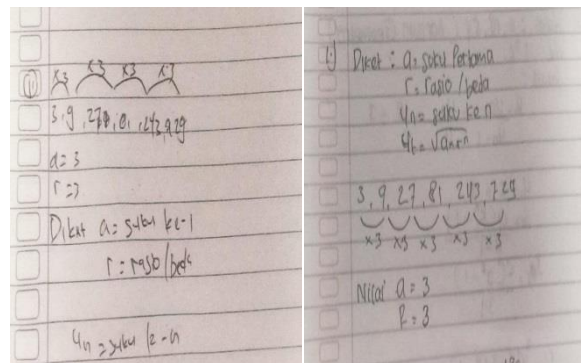 1.
x3 x3 x3 x3
3, 9, 27, 81, 243, 729
a = 3
r = 3
Dikat a = suku ke-1
r = rasio / beda
Un = suku ke-n
1.) Diket : a = suku Pertama
r = rasio / beda
Un = suku ke n
3, 9, 27, 81, 243, 729
x3 x3 x3 x3 x3
Nilai a = 3
r = 3